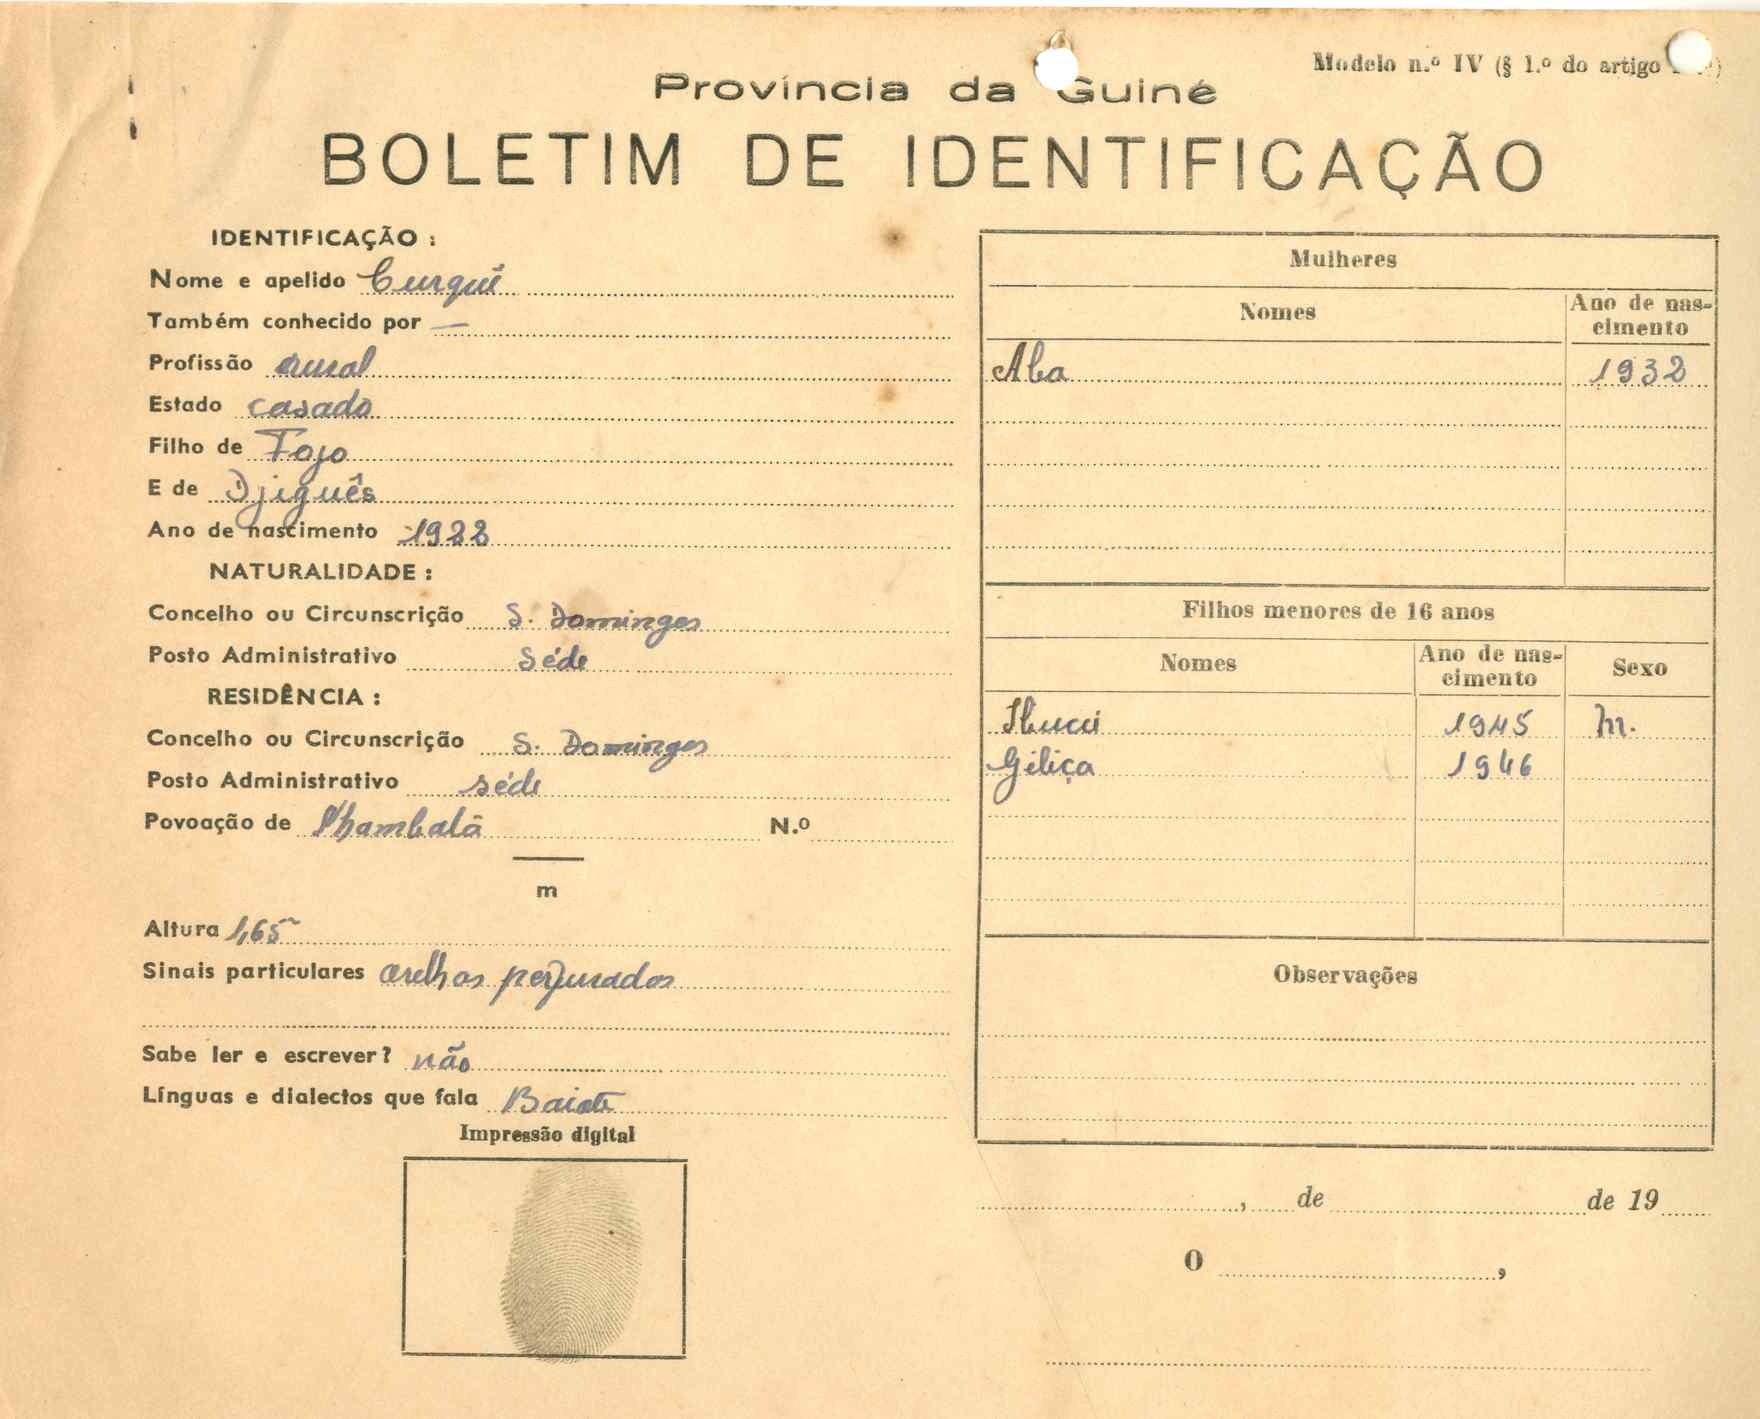 Modelo n.º IV (§ 1.º do artigo
Província da Guiné
BOLETIM DE IDENTIFICAÇÃO
IDENTIFICAÇÃO :
Nome e apelido Curqui
Também conhecido por —
Profissão rural
Estado casado
Filho de Fojo
E de Djiguês
Ano de nascimento 1922
NATURALIDADE :
Concelho ou Circunscrição S. Domingos
Posto Administrativo Séde
RESIDÊNCIA :
Concelho ou Circunscrição S. Domingos
Posto Administrativo séde
Povoação de N.º
m
Altura 1,65
Sinais particulares orelhas perfuradas
Sabe ler e escrever? não
Línguas e dialectos que fala Baiote
Impressão digital
Mulheres
Nomes Ano de nas-
cimento
Aba 1932
Filhos menores de 16 anos
Nomes Ano de nas- Sexo
cimento
1945 M.
Giliça 1946
Observações
, de de 19
O ,